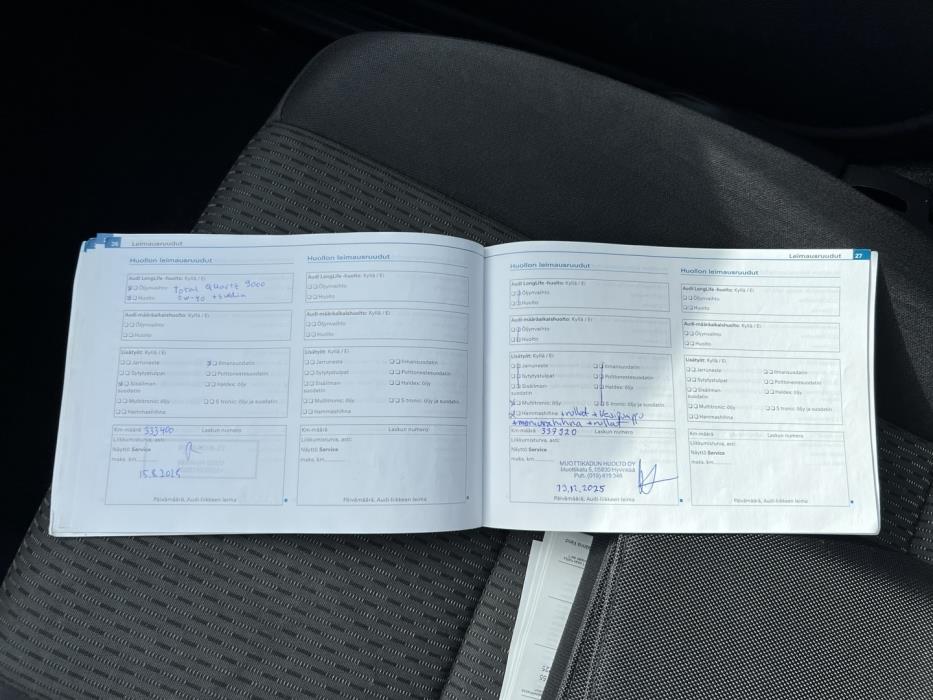 26 Leimausruudut
Huollon leimausruudut
Audi LongLife -huolto: Kyllä / Ei
Öljynvaihto Total Quartz 9000
Huolto 5w-40 + suodin
Audi-määräaikaishuolto: Kyllä / Ei
Öljynvaihto
Huolto
Lisätyöt: Kyllä / Ei
Jarruneste
Ilmansuodatin
Sytytystulpat
Polttoainesuodatin
Sisäilman
suodatin
Haldex: öljy
Multitronic: öljy
S tronic: öljy ja suodatin
Hammashihna
Km-määrä 333400 Laskun numero
Liikkumisturva, asti:
Näyttö Service
maks. km
15.8.2025
Päivämäärä, Audi-liikkeen leima
Huollon leimausruudut
Audi LongLife -huolto: Kyllä / Ei
Öljynvaihto
Huolto
Audi-määräaikaishuolto: Kyllä / Ei
Öljynvaihto
Huolto
Lisätyöt: Kyllä / Ei
Jarruneste
Ilmansuodatin
Sytytystulpat
Polttoainesuodatin
Sisäilman
suodatin
Haldex: öljy
Multitronic: öljy
S tronic: öljy ja suodatin
Hammashihna
Km-määrä Laskun numero
Liikkumisturva, asti:
Näyttö Service
maks. km
Päivämäärä, Audi-liikkeen leima
Leimausruudut 27
Huollon leimausruudut
Audi LongLife -huolto: Kyllä / Ei
Öljynvaihto
Huolto
Audi-määräaikaishuolto: Kyllä / Ei
Öljynvaihto
Huolto
Lisätyöt: Kyllä / Ei
Jarruneste
Ilmansuodatin
Sytytystulpat
Polttoainesuodatin
Sisäilman
suodatin
Haldex: öljy
Multitronic: öljy
S tronic: öljy ja suodatin
Hammashihna + rullat + vesipumppu
+ moniurahihna + rullat !!
Km-määrä 337520 Laskun numero
Liikkumisturva, asti:
Näyttö Service
maks. km
MUOTTIKADUN HUOLTO OY
Muottikatu 5, 05830 Hyvinkää
Puh. (019) 419 346
13.12.2025
Päivämäärä, Audi-liikkeen leima
Huollon leimausruudut
Audi LongLife -huolto: Kyllä / Ei
Öljynvaihto
Huolto
Audi-määräaikaishuolto: Kyllä / Ei
Öljynvaihto
Huolto
Lisätyöt: Kyllä / Ei
Jarruneste
Ilmansuodatin
Sytytystulpat
Polttoainesuodatin
Sisäilman
suodatin
Haldex: öljy
Multitronic: öljy
S tronic: öljy ja suodatin
Hammashihna
Km-määrä Laskun numero
Liikkumisturva, asti:
Näyttö Service
maks. km
Päivämäärä, Audi-liikkeen leima